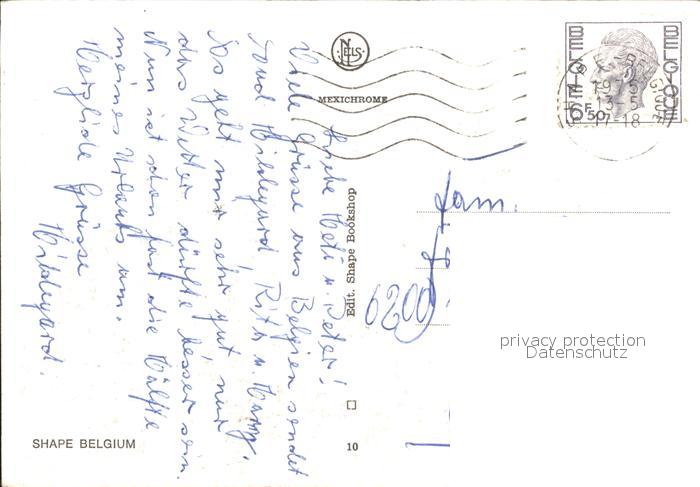 Liebe Heti u. Peter!
Viele Grüsse aus Belgien sendet
Euch Hildegard Rita u. Harry.
Es geht mir sehr gut, nur
das Wetter dürfte besser sein.
Nun ist schon fast die Hälfte
meines Urlaubs um.
Herzliche Grüsse
Hildegard.
SHAPE BELGIUM
NELS
MEXICHROME
Edit. Shape Bookshop
10
BELGIE
BELGIQUE
6F50
13-5
17-18
Fam.
6200
privacy protection
Datenschutz